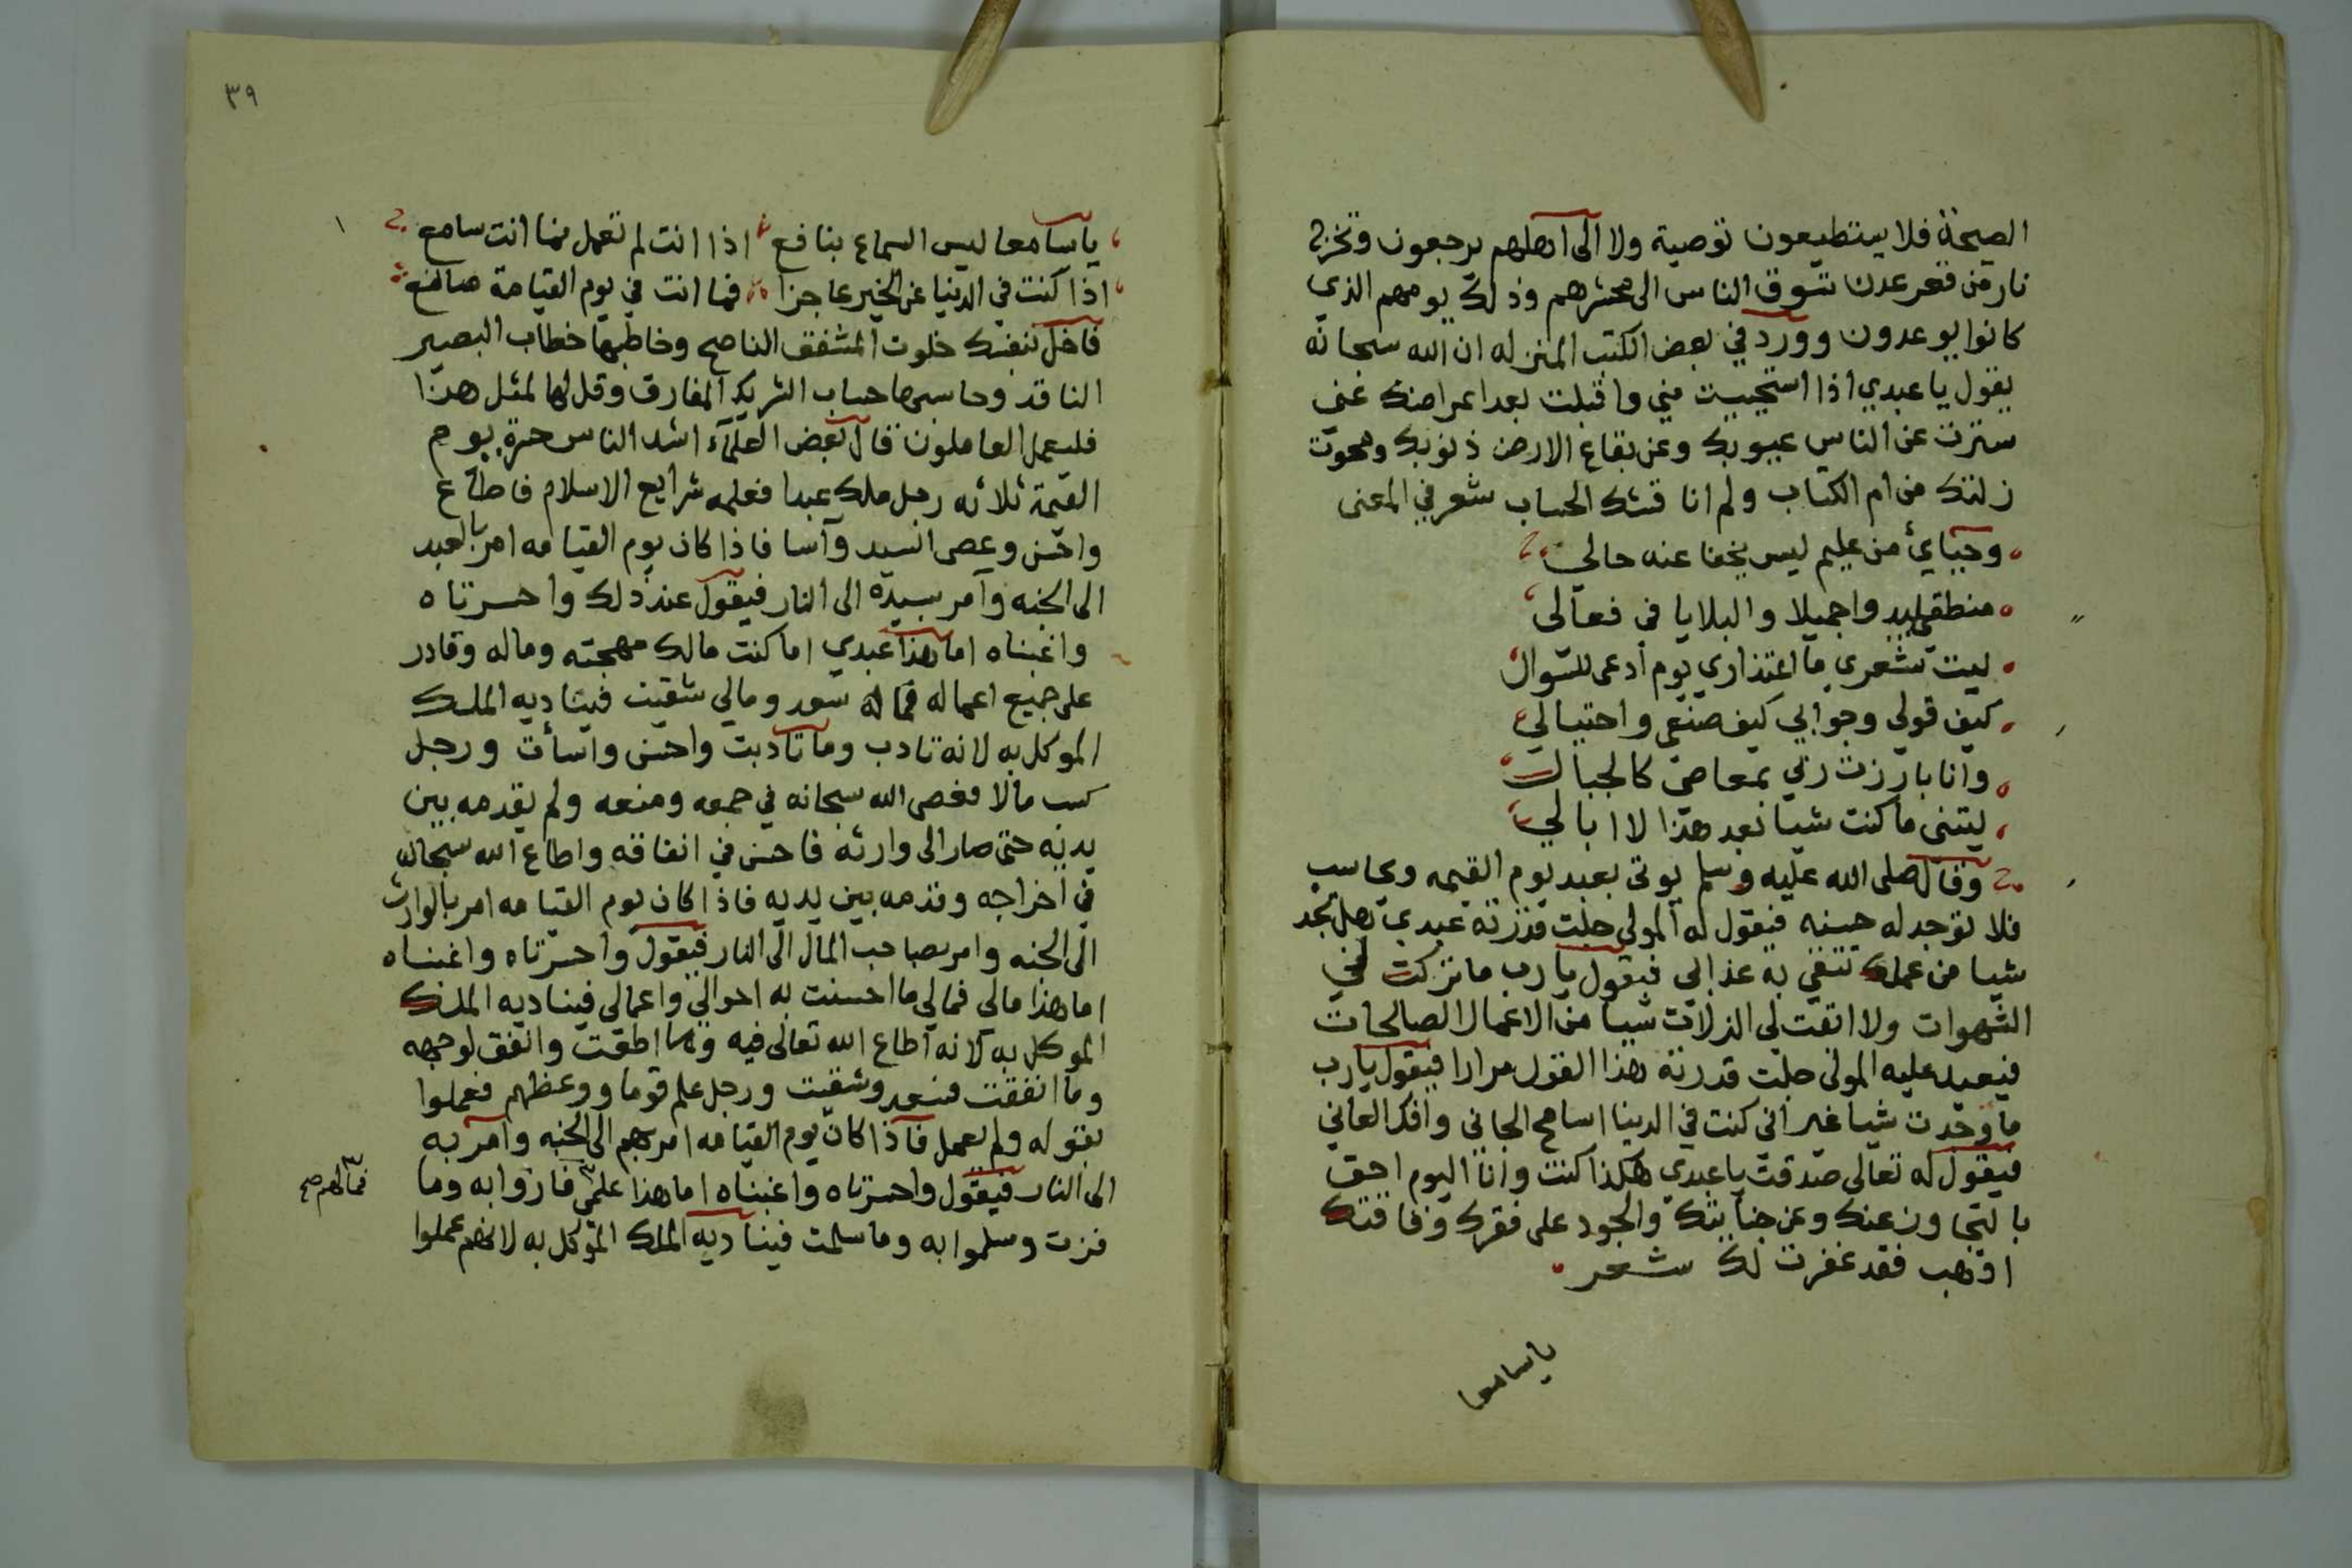 الصيحة فلا يستطيعون توصية ولا الى اهلهم يرجعون وتخرج
نار من قعر عدن تسوق الناس الى محشرهم وذلك يومهم الذي
كانوا يوعدون وورد في بعض الكتب المنزله ان الله سبحانه
يقول يا عبدي اذا استحييت مني واقبلت بعد اعراضك عني
سترت عن الناس عيوبك وعن بقاع الارض ذنوبك ومحوت
زلتك من ام الكتاب ولم اناقشك الحساب شعر في المعنى
وحيائي من عليم ليس يخفا عنه حالي
منطقي يبدوا جميلا والبلايا في فعالي
ليت شعري ما اعتذاري يوم أدعى للسوال
كيف قولي وجوابي كيف صنعي واحتيالي
وانا بارزت ربي بمعاصي كالجبال
ليتني ما كنت شيا بعد هذا لا ابالي
وقال صلى الله عليه وسلم يوتى بعبد يوم القيمه ويحاسب
فلا توجد له حسنه فيقول له المولى جلت قدرته عبدي هل تجد
شيا من عملك تتقي به عذابي فيقول يا رب ما تركت لي
الشهوات ولا اتقت لي الزلات شيا من الاعمال الصالحات
فيعيد عليه المولى جلت قدرته هذا القول مرارا فيقول يا رب
ما وجدت شيا غير اني كنت في الدنيا اسامح الجاني وافك العاني
فيقول له تعالى صدقت يا عبدي هكذا كنت وانا اليوم احق
بالتجاوز عنك وعن جنايتك والجود على فقرك وفاقتك
اذهب فقد غفرت لك شعر
يا سامعا
٣٩
يا سامعا ليس السماع بنافع اذا انت لم تعمل بما انت سامع
اذا كنت في الدنيا عن الخير عاجزا فما انت في يوم القيامة صانع
فاخل بنفسك خلوت المشفق الناصح وخاطبها خطاب البصير
الناقد وحاسبها حساب الشريك المفارق وقل لها لمثل هذا
فليعمل العاملون قال بعض العلماء اشد الناس حسرة يوم
القيمة ثلاثه رجل ملك عبدا فعلمه شرايع الاسلام فاطاع
واحسن وعصى السيد وآسا فاذا كان يوم القيامه امر بالعبد
الى الجنه وآمر بسيده الى النار فيقول عند ذلك واحسرتاه
واغبناه اما هذا عبدي اما كنت مالك مهجته وماله وقادر
على جميع اعماله فماله سعد ومالي شقيت فيناديه الملك
الموكل به لانه تادب وما تادبت واحسن واسأت ورجل
كسب مالا فعصى الله سبحانه في جمعه ومنعه ولم يقدمه بين
يديه حتى صار الى وارثه فاحسن في انفاقه واطاع الله سبحانه
في اخراجه وقدمه بين يديه فاذا كان يوم القيامه امر بالوارث
الى الجنه وامر بصاحب المال الى النار فيقول واحسرتاه واغبناه
اما هذا مالي فمالي ما احسنت به احوالي واعمالي فيناديه الملك
الموكل به لانه اطاع الله تعالى فيه وما اطعت وانفق لوجهه
وما انفقت فسعد وشقيت ورجل علم قوما ووعظهم فعملوا
بقوله ولم يعمل فاذا كان يوم القيامه امر بهم الى الجنه وامر به
الى النار فيقول واحسرتاه واغبناه اما هذا علمي فازوا به وما
فمالهم صح
فزت وسلموا به وما سلمت فيناديه الملك الموكل به لانهم عملوا